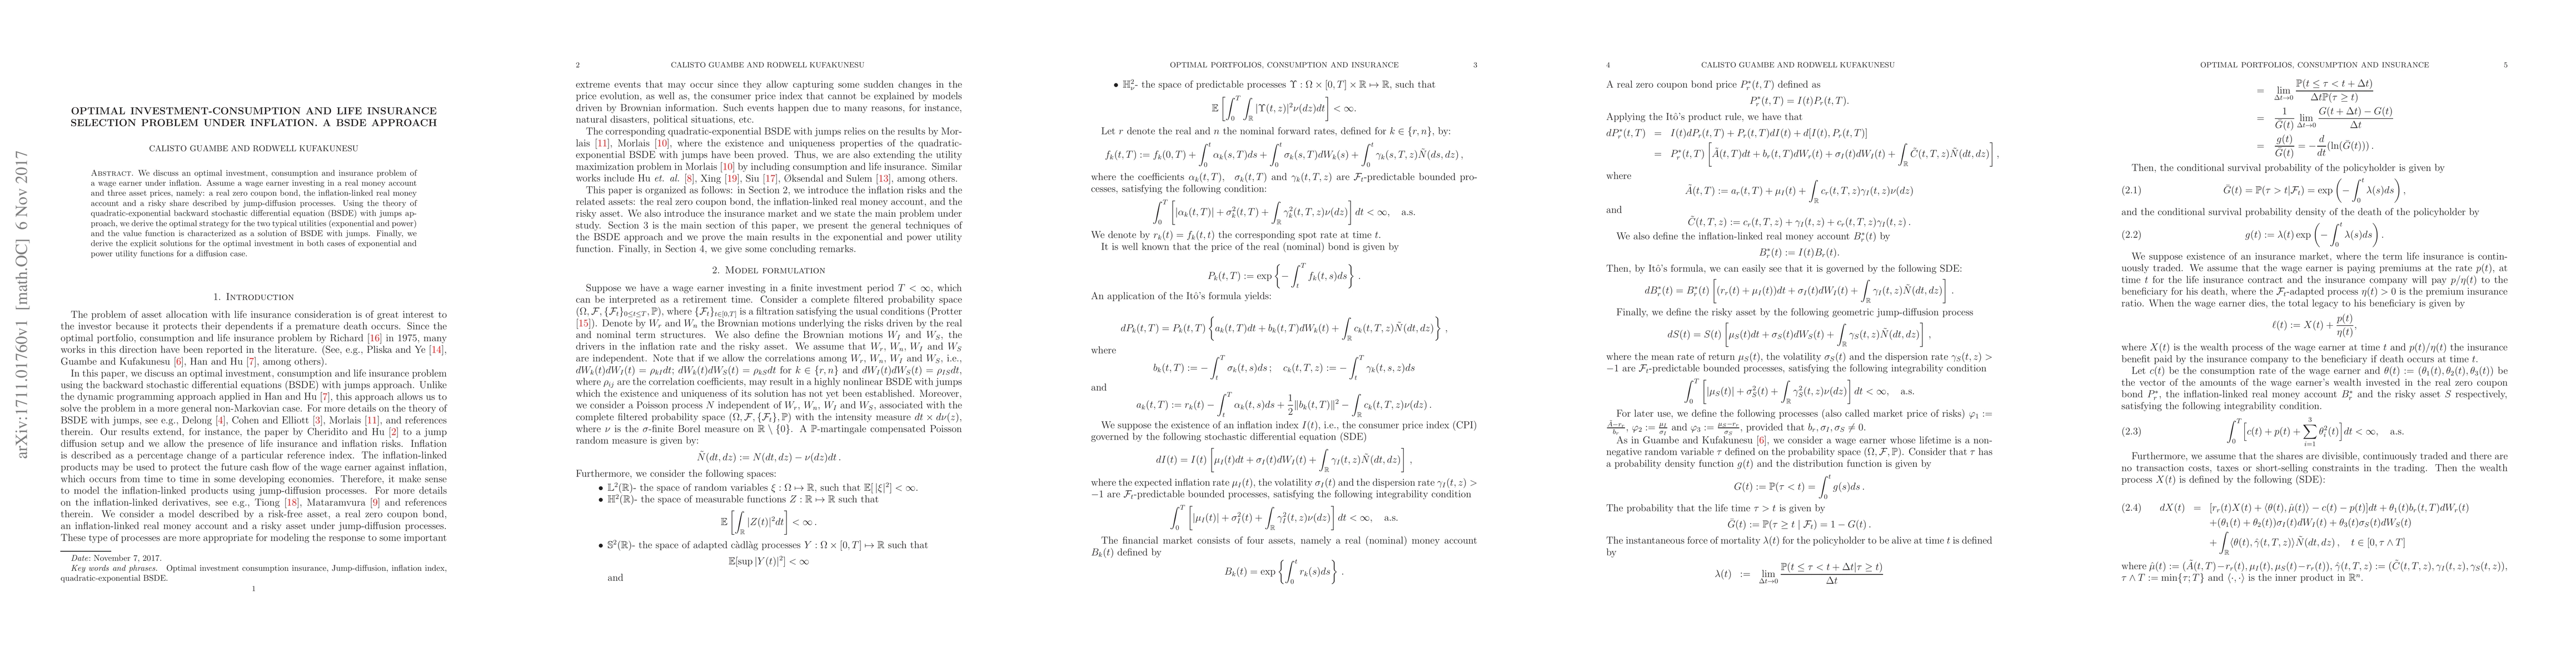 arXiv:1711.01760v1 [math.OC] 6 Nov 2017
OPTIMAL INVESTMENT-CONSUMPTION AND LIFE INSURANCE
SELECTION PROBLEM UNDER INFLATION. A BSDE APPROACH
CALISTO GUAMBE AND RODWELL KUFAKUNESU
Abstract. We discuss an optimal investment, consumption and insurance problem
of a wage earner under inflation. Assume a wage earner investing in a real money account
and three asset prices, namely: a real zero coupon bond, the inflation-linked real money
account and a risky share described by jump-diffusion processes. Using the theory of
quadratic-exponential backward stochastic differential equation (BSDE) with jumps ap-
proach, we derive the optimal strategy for the two typical utilities (exponential and power)
and the value function is characterized as a solution of BSDE with jumps. Finally, we
derive the explicit solutions for the optimal investment in both cases of exponential and
power utility functions for a diffusion case.
1. Introduction
The problem of asset allocation with life insurance consideration is of great interest to
the investor because it protects their dependents if a premature death occurs. Since the
optimal portfolio, consumption and life insurance problem by Richard [16] in 1975, many
works in this direction have been reported in the literature. (See, e.g., Pliska and Ye [14],
Guambe and Kufakunesu [6], Han and Hu [7], among others).
In this paper, we discuss an optimal investment, consumption and life insurance problem
using the backward stochastic differential equations (BSDE) with jumps approach. Unlike
the dynamic programming approach applied in Han and Hu [7], this approach allows us to
solve the problem in a more general non-Markovian case. For more details on the theory of
BSDE with jumps, see e.g., Delong [4], Cohen and Elliott [3], Morlais [11], and references
therein. Our results extend, for instance, the paper by Cheridito and Hu [2] to a jump
diffusion setup and we allow the presence of life insurance and inflation risks. Inflation
is described as a percentage change of a particular reference index. The inflation-linked
products may be used to protect the future cash flow of the wage earner against inflation,
which occurs from time to time in some developing economies. Therefore, it make sense
to model the inflation-linked products using jump-diffusion processes. For more details
on the inflation-linked derivatives, see e.g., Tiong [18], Mataramvura [9] and references
therein. We consider a model described by a risk-free asset, a real zero coupon bond,
an inflation-linked real money account and a risky asset under jump-diffusion processes.
These type of processes are more appropriate for modeling the response to some important
Date: November 7, 2017.
Key words and phrases. Optimal investment consumption insurance, Jump-diffusion, inflation index,
quadratic-exponential BSDE.
1
2 CALISTO GUAMBE AND RODWELL KUFAKUNESU
extreme events that may occur since they allow capturing some sudden changes in the
price evolution, as well as, the consumer price index that cannot be explained by models
driven by Brownian information. Such events happen due to many reasons, for instance,
natural disasters, political situations, etc.
The corresponding quadratic-exponential BSDE with jumps relies on the results by Mor-
lais [11], Morlais [10], where the existence and uniqueness properties of the quadratic-
exponential BSDE with jumps have been proved. Thus, we are also extending the utility
maximization problem in Morlais [10] by including consumption and life insurance. Similar
works include Hu et. al. [8], Xing [19], Siu [17], Øksendal and Sulem [13], among others.
This paper is organized as follows: in Section 2, we introduce the inflation risks and the
related assets: the real zero coupon bond, the inflation-linked real money account, and the
risky asset. We also introduce the insurance market and we state the main problem under
study. Section 3 is the main section of this paper, we present the general techniques of
the BSDE approach and we prove the main results in the exponential and power utility
function. Finally, in Section 4, we give some concluding remarks.
2. Model formulation
Suppose we have a wage earner investing in a finite investment period T < ∞, which
can be interpreted as a retirement time. Consider a complete filtered probability space
(Ω, F, {F_t}_{0≤t≤T}, ℙ), where {F_t}_{t∈[0,T]} is a filtration satisfying the usual conditions (Protter
[15]). Denote by W_r and W_n the Brownian motions underlying the risks driven by the real
and nominal term structures. We also define the Brownian motions W_I and W_S, the
drivers in the inflation rate and the risky asset. We assume that W_r, W_n, W_I and W_S
are independent. Note that if we allow the correlations among W_r, W_n, W_I and W_S, i.e.,
dW_k(t)dW_I(t) = ρ_{kI}dt; dW_k(t)dW_S(t) = ρ_{kS}dt for k ∈ {r, n} and dW_I(t)dW_S(t) = ρ_{IS}dt,
where ρ_{ij} are the correlation coefficients, may result in a highly nonlinear BSDE with jumps
which the existence and uniqueness of its solution has not yet been established. Moreover,
we consider a Poisson process N independent of W_r, W_n, W_I and W_S, associated with the
complete filtered probability space (Ω, F, {F_t}, ℙ) with the intensity measure dt × dν(z),
where ν is the σ-finite Borel measure on ℝ \ {0}. A ℙ-martingale compensated Poisson
random measure is given by:
Ñ(dt, dz) := N(dt, dz) − ν(dz)dt .
Furthermore, we consider the following spaces:
• 𝕃²(ℝ)- the space of random variables ξ : Ω ↦ ℝ, such that 𝔼[ |ξ|²] < ∞.
• ℍ²(ℝ)- the space of measurable functions Z : ℝ ↦ ℝ such that
𝔼[∫_ℝ |Z(t)|²dt] < ∞ .
• 𝕊²(ℝ)- the space of adapted càdlàg processes Y : Ω × [0, T] ↦ ℝ such that
𝔼[sup |Y(t)|²] < ∞
and
OPTIMAL PORTFOLIOS, CONSUMPTION AND INSURANCE 3
• ℍ²_ν- the space of predictable processes Υ : Ω × [0, T] × ℝ ↦ ℝ, such that
𝔼[∫_0^T ∫_ℝ |Υ(t, z)|²ν(dz)dt] < ∞.
Let r denote the real and n the nominal forward rates, defined for k ∈ {r, n}, by:
f_k(t, T) := f_k(0, T) + ∫_0^t α_k(s, T)ds + ∫_0^t σ_k(s, T)dW_k(s) + ∫_0^t γ_k(s, T, z)Ñ(ds, dz) ,
where the coefficients α_k(t, T), σ_k(t, T) and γ_k(t, T, z) are F_t-predictable bounded pro-
cesses, satisfying the following condition:
∫_0^T [|α_k(t, T)| + σ_k²(t, T) + ∫_ℝ γ_k²(t, T, z)ν(dz)] dt < ∞, a.s.
We denote by r_k(t) = f_k(t, t) the corresponding spot rate at time t.
It is well known that the price of the real (nominal) bond is given by
P_k(t, T) := exp{−∫_t^T f_k(t, s)ds} .
An application of the Itô's formula yields:
dP_k(t, T) = P_k(t, T){a_k(t, T)dt + b_k(t, T)dW_k(t) + ∫_ℝ c_k(t, T, z)Ñ(dt, dz)} ,
where
b_k(t, T) := −∫_t^T σ_k(t, s)ds ; c_k(t, T, z) := −∫_t^T γ_k(t, s, z)ds
and
a_k(t, T) := r_k(t) − ∫_t^T α_k(t, s)ds + ½‖b_k(t, T)‖² − ∫_ℝ c_k(t, T, z)ν(dz) .
We suppose the existence of an inflation index I(t), i.e., the consumer price index (CPI)
governed by the following stochastic differential equation (SDE)
dI(t) = I(t)[μ_I(t)dt + σ_I(t)dW_I(t) + ∫_ℝ γ_I(t, z)Ñ(dt, dz)] ,
where the expected inflation rate μ_I(t), the volatility σ_I(t) and the dispersion rate γ_I(t, z) >
−1 are F_t-predictable bounded processes, satisfying the following integrability condition
∫_0^T [|μ_I(t)| + σ_I²(t) + ∫_ℝ γ_I²(t, z)ν(dz)] dt < ∞, a.s.
The financial market consists of four assets, namely a real (nominal) money account
B_k(t) defined by
B_k(t) = exp{∫_0^t r_k(s)ds} .
4 CALISTO GUAMBE AND RODWELL KUFAKUNESU
A real zero coupon bond price P_r^*(t, T) defined as
P_r^*(t, T) = I(t)P_r(t, T).
Applying the Itô's product rule, we have that
dP_r^*(t, T) = I(t)dP_r(t, T) + P_r(t, T)dI(t) + d[I(t), P_r(t, T)]
= P_r^*(t, T)[Ã(t, T)dt + b_r(t, T)dW_r(t) + σ_I(t)dW_I(t) + ∫_ℝ C̃(t, T, z)Ñ(dt, dz)] ,
where
Ã(t, T) := a_r(t, T) + μ_I(t) + ∫_ℝ c_r(t, T, z)γ_I(t, z)ν(dz)
and
C̃(t, T, z) := c_r(t, T, z) + γ_I(t, z) + c_r(t, T, z)γ_I(t, z) .
We also define the inflation-linked real money account B_r^*(t) by
B_r^*(t) := I(t)B_r(t).
Then, by Itô's formula, we can easily see that it is governed by the following SDE:
dB_r^*(t) = B_r^*(t)[(r_r(t) + μ_I(t))dt + σ_I(t)dW_I(t) + ∫_ℝ γ_I(t, z)Ñ(dt, dz)] .
Finally, we define the risky asset by the following geometric jump-diffusion process
dS(t) = S(t)[μ_S(t)dt + σ_S(t)dW_S(t) + ∫_ℝ γ_S(t, z)Ñ(dt, dz)] ,
where the mean rate of return μ_S(t), the volatility σ_S(t) and the dispersion rate γ_S(t, z) >
−1 are F_t-predictable bounded processes, satisfying the following integrability condition
∫_0^T [|μ_S(t)| + σ_S²(t) + ∫_ℝ γ_S²(t, z)ν(dz)] dt < ∞, a.s.
For later use, we define the following processes (also called market price of risks) φ_1 :=
(Ã−r_r)/b_r, φ_2 := μ_I/σ_I and φ_3 := (μ_S−r_r)/σ_S, provided that b_r, σ_I, σ_S ≠ 0.
As in Guambe and Kufakunesu [6], we consider a wage earner whose lifetime is a non-
negative random variable τ defined on the probability space (Ω, F, ℙ). Consider that τ has
a probability density function g(t) and the distribution function is given by
G(t) := ℙ(τ < t) = ∫_0^t g(s)ds .
The probability that the life time τ > t is given by
Ḡ(t) := ℙ(τ ≥ t | F_t) = 1 − G(t) .
The instantaneous force of mortality λ(t) for the policyholder to be alive at time t is defined
by
λ(t) := lim_{Δt→0} ℙ(t ≤ τ < t + Δt|τ ≥ t)/Δt
OPTIMAL PORTFOLIOS, CONSUMPTION AND INSURANCE 5
= lim_{Δt→0} ℙ(t ≤ τ < t + Δt)/(Δtℙ(τ ≥ t))
= 1/Ḡ(t) lim_{Δt→0} (G(t + Δt) − G(t))/Δt
= g(t)/Ḡ(t) = −d/dt(ln(Ḡ(t))) .
Then, the conditional survival probability of the policyholder is given by
(2.1) Ḡ(t) = ℙ(τ > t|F_t) = exp(−∫_0^t λ(s)ds) ,
and the conditional survival probability density of the death of the policyholder by
(2.2) g(t) := λ(t) exp(−∫_0^t λ(s)ds) .
We suppose existence of an insurance market, where the term life insurance is contin-
uously traded. We assume that the wage earner is paying premiums at the rate p(t), at
time t for the life insurance contract and the insurance company will pay p/η(t) to the
beneficiary for his death, where the F_t-adapted process η(t) > 0 is the premium insurance
ratio. When the wage earner dies, the total legacy to his beneficiary is given by
ℓ(t) := X(t) + p(t)/η(t),
where X(t) is the wealth process of the wage earner at time t and p(t)/η(t) the insurance
benefit paid by the insurance company to the beneficiary if death occurs at time t.
Let c(t) be the consumption rate of the wage earner and θ(t) := (θ_1(t), θ_2(t), θ_3(t)) be
the vector of the amounts of the wage earner's wealth invested in the real zero coupon
bond P_r^*, the inflation-linked real money account B_r^* and the risky asset S respectively,
satisfying the following integrability condition.
(2.3) ∫_0^T [c(t) + p(t) + Σ_{i=1}^3 θ_i²(t)] dt < ∞, a.s.
Furthermore, we assume that the shares are divisible, continuously traded and there are
no transaction costs, taxes or short-selling constraints in the trading. Then the wealth
process X(t) is defined by the following (SDE):
(2.4) dX(t) = [r_r(t)X(t) + ⟨θ(t), μ̂(t)⟩ − c(t) − p(t)]dt + θ_1(t)b_r(t, T)dW_r(t)
+(θ_1(t) + θ_2(t))σ_I(t)dW_I(t) + θ_3(t)σ_S(t)dW_S(t)
+ ∫_ℝ ⟨θ(t), γ̂(t, T, z)⟩Ñ(dt, dz) , t ∈ [0, τ ∧ T]
where μ̂(t) := (Ã(t, T)−r_r(t), μ_I(t), μ_S(t)−r_r(t)), γ̂(t, T, z) := (C̃(t, T, z), γ_I(t, z), γ_S(t, z)),
τ ∧ T := min{τ; T} and ⟨·, ·⟩ is the inner product in ℝⁿ.